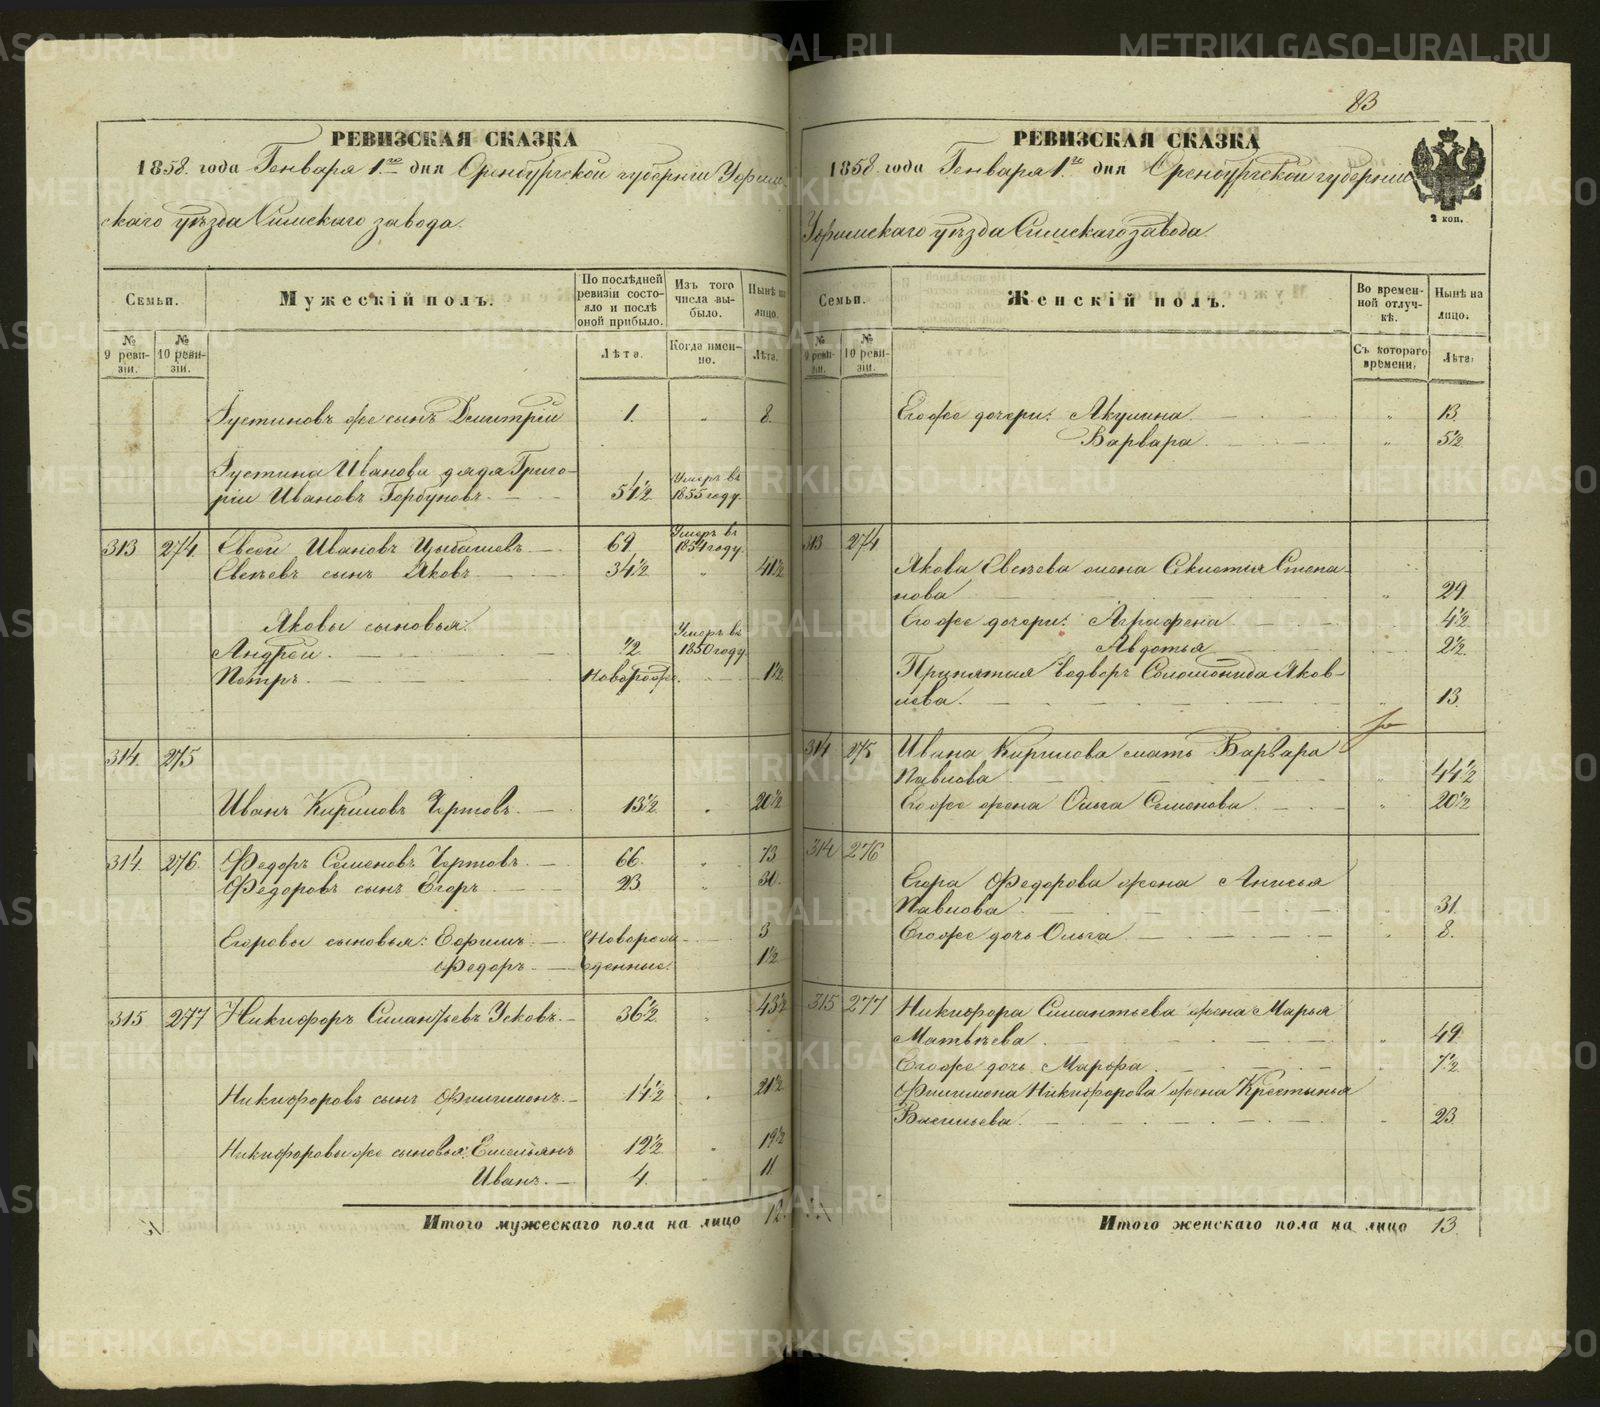 83
РЕВИЗСКАЯ СКАЗКА
1858. года Генваря 1го дня Оренбургской губернiи Уфим-
скаго уѣзда Симскаго завода.
Семьи.
Мужескiй полъ.
По послѣдней ревизiи состо-
яло и послѣ оной прибыло.
Изъ того числа вы-
было.
Нынѣ на лицо.
№ 9 реви-
зiи.
№ 10 реви-
зiи.
Лѣта.
Когда имен-
но.
Лѣта.
Густиновъ же сынъ Дмитрiй 1. " 8.
Густина Иванова дядя Григо-
рiй Ивановъ Горбуновъ 51½ Умеръ въ 1855 году.
313 274 Евсей Ивановъ 69 Умеръ въ 1854 году.
Евсѣевъ сынъ Яковъ 34½ " 41½
Яковы сыновья:
Андрей ½ Умеръ въ 1850 году.
Петръ Новорож. 1½
314. 275
Иванъ Кириловъ Чертовъ. 13½ " 20½
314. 276. Федоръ Семеновъ Чертовъ. 66. " 73
Федоровъ сынъ Егоръ 23. " 30.
Егоровы сыновья: Ефимъ Новорож- 3
Федоръ денные. 1½
315 277 Никифоръ Силантьевъ Усковъ. 36½ " 43½
Никифоровъ сынъ Филимонъ. 14½ " 21½
Никифоровы же сыновья: Емельянъ 12½ " 19½
Иванъ. 4. " 11
Итого мужескаго пола на лицо 12.
РЕВИЗСКАЯ СКАЗКА
1858. года Генваря 1го дня Оренбургской губернiи
2 коп.
Уфимскаго уѣзда Симскаго завода.
Семьи.
Женскiй полъ.
Во времен-
ной отлуч-
кѣ.
Нынѣ на лицо.
№ 9 реви-
зiи.
№ 10 реви-
зiи.
Съ котораго времени.
Лѣта.
Его же дочери: Акулина " 13.
Варвара " 5½
313 274
Якова Евсѣева жена Степа-
нова " 29
Его же дочери: Аграфена 4½
Авдотья 2½
Принятая Соломонида Яков-
лева. 13.
314 275 Ивана Кирилова мать Варвара
Павлова " 44½
Его же жена Ольга Семенова " 20½
314 276
Егора Федорова жена Анисья
Павлова " 31.
Его же дочь Ольга " 8.
315 277 Никифора Силантьева жена Марья
Матвѣева " 49.
Его же дочь Марфа 7½
Филимона Никифорова жена Крестинья
Васильева " 23.
Итого женскаго пола на лицо 13.
METRIKI.GASO-URAL.RU